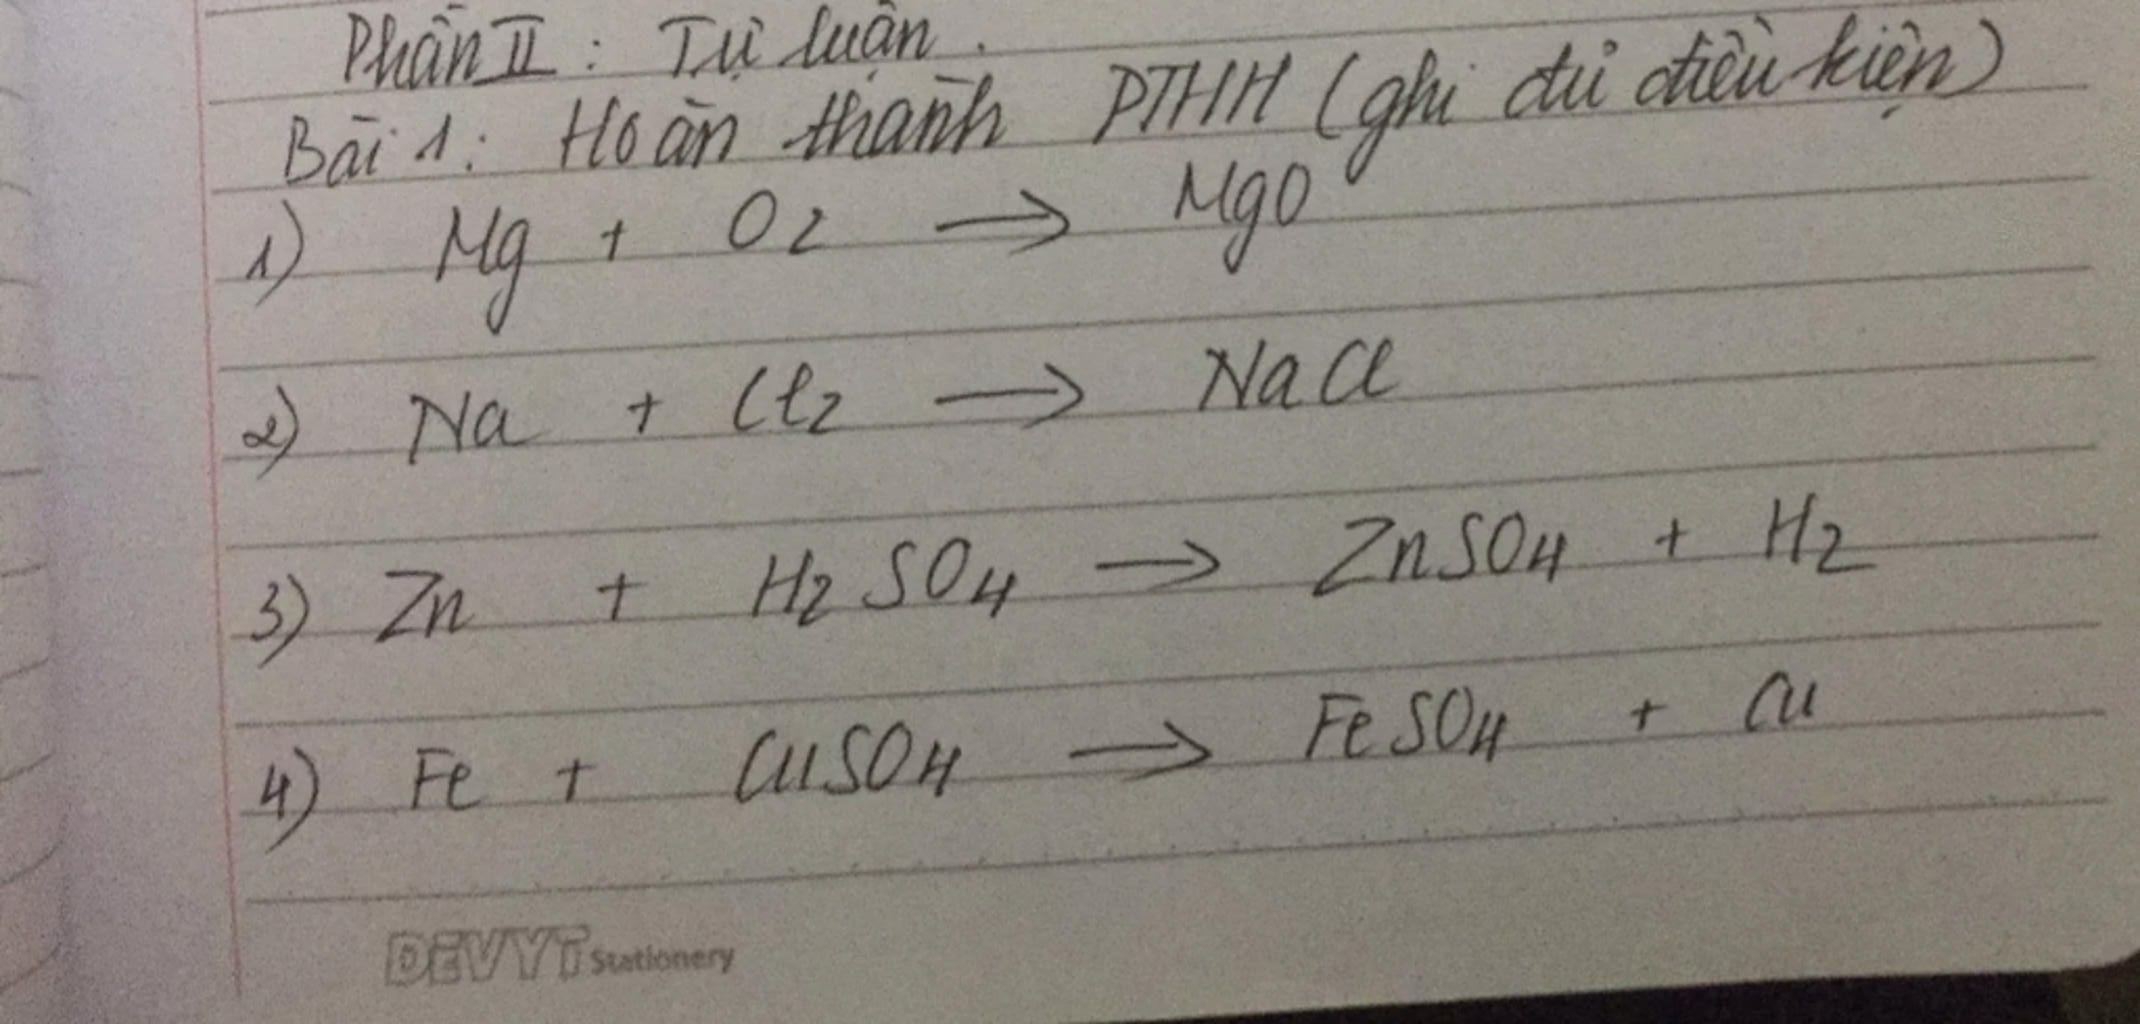 Phần II : Tự luận.
Bài 1: Hoàn thành PTHH (ghi đủ điều kiện)
1) Mg + O2 → MgO
2) Na + Cl2 → NaCl
3) Zn + H2SO4 → ZnSO4 + H2
4) Fe + CuSO4 → FeSO4 + Cu
DEVYT Stationery